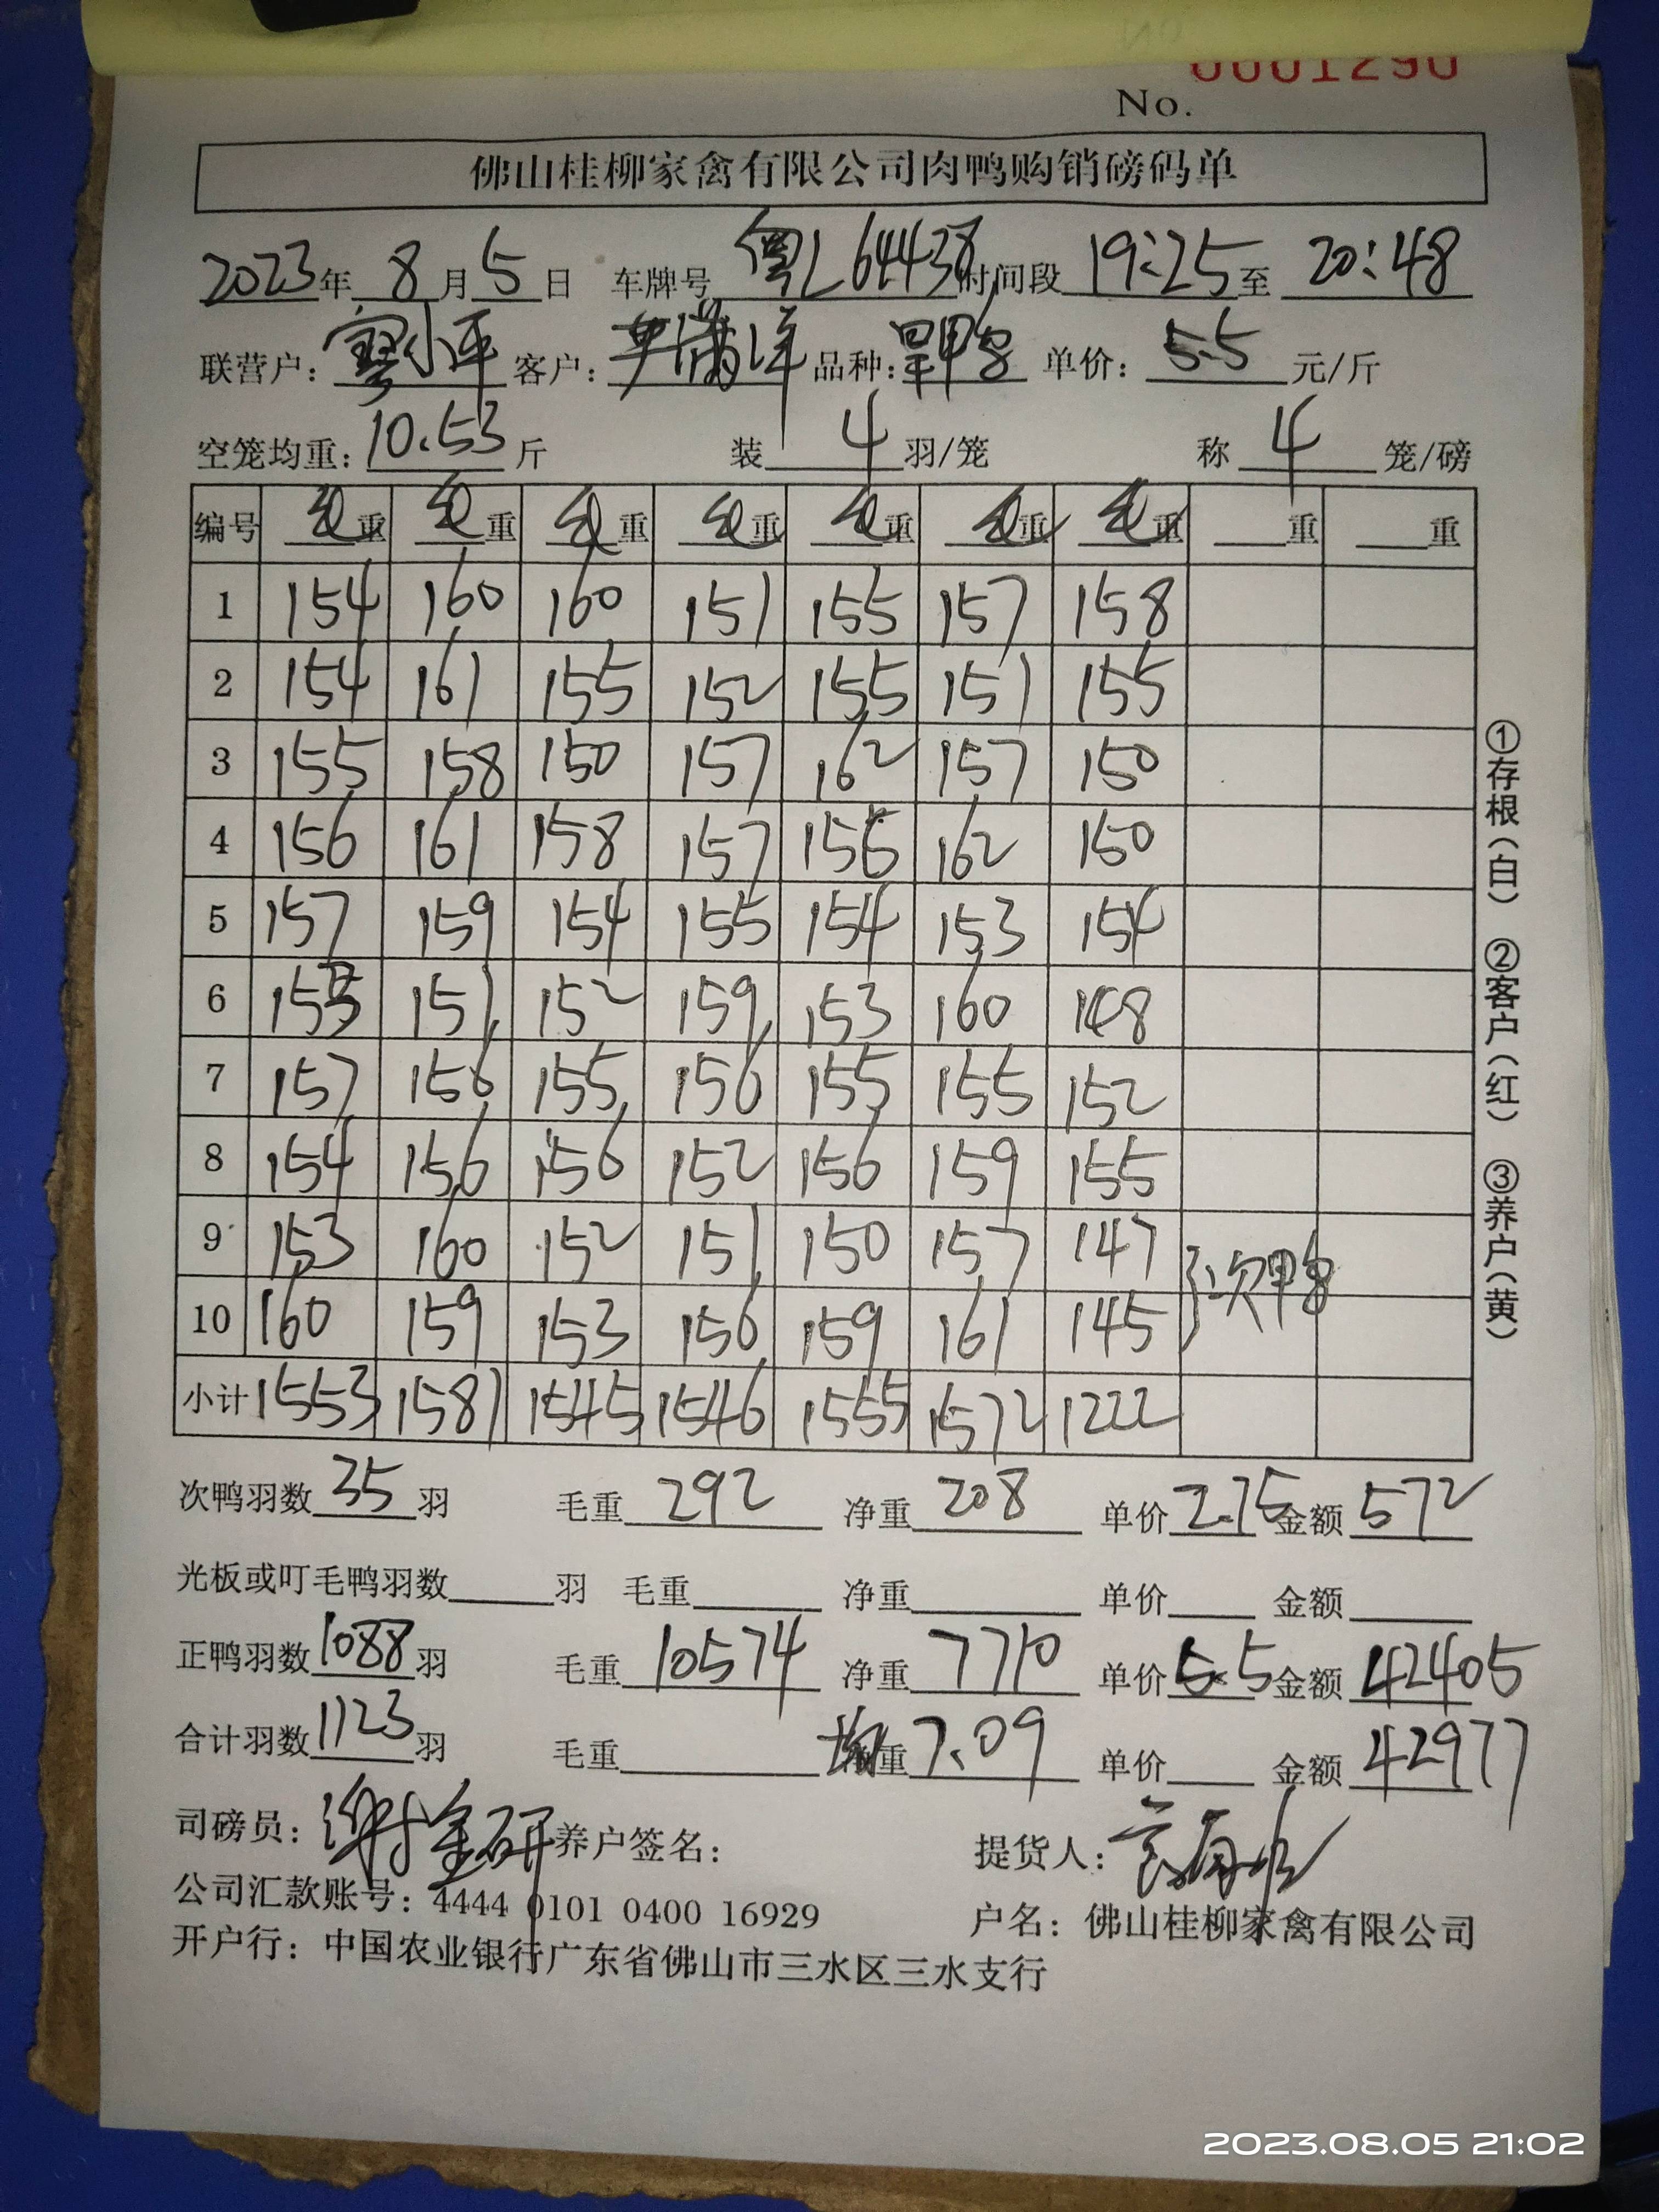 0001290
No.
佛山桂柳家禽有限公司肉鸭购销磅码单
2023年 8月5日 车牌号 粤L64438 时间段 19:25至 20:48
联营户: 廖小平 客户: 满洋 品种: 单价: 5.5 元/斤
空笼均重: 10.53 斤 装 4 羽/笼 称 4 笼/磅
编号 毛重 毛重 毛重 毛重 毛重 毛重 毛重 重 重
1 154 160 160 151 155 157 158
2 154 161 155 152 155 151 155
3 155 158 150 157 162 157 150
4 156 161 158 157 156 162 150
5 157 159 154 155 154 153 154
6 153 151 152 159 153 160 148
7 157 156 155 156 155 155 152
8 154 156 156 152 156 159 155
9 153 160 152 151 150 157 147 次鸭
10 160 159 153 156 159 161 145
小计 1553 1581 1545 1546 1555 1572 1222
次鸭羽数 35 羽 毛重 292 净重 208 单价 2.75 金额 572
光板或叮毛鸭羽数 羽 毛重 净重 单价 金额
正鸭羽数 1088 羽 毛重 10574 净重 7710 单价 5.5 金额 42405
合计羽数 1123 羽 毛重 均重 7.09 单价 金额 42977
司磅员: 谢金研 养户签名: 提货人:
公司汇款账号: 4444 0101 0400 16929 户名: 佛山桂柳家禽有限公司
开户行: 中国农业银行广东省佛山市三水区三水支行
①存根(白) ②客户(红) ③养户(黄)
2023.08.05 21:02